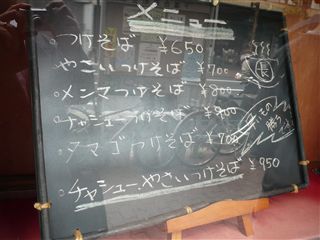 メニュー
・つけそば ¥650
・やさいつけそば ¥700
・メンマつけそば ¥800
・チャシューつけそば ¥900
・タマゴつけそば ¥700
・チャシューやさいつけそば ¥950